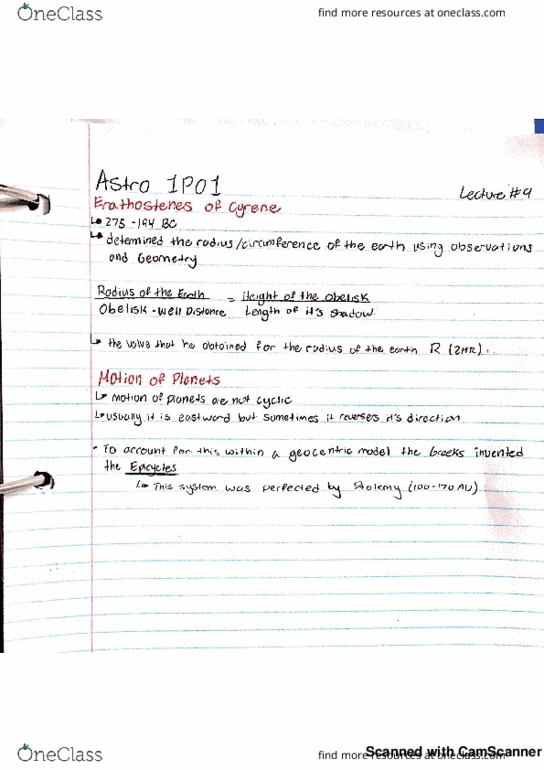 OneClass
find more resources at oneclass.com
Astro 1P01
Lecture #4
Erathostenes of Cyrene
↳ 275 - 194 BC
↳ determined the radius/circumference of the earth using observations
and Geometry
Radius of the Earth = Height of the Obelisk
Obelisk - Well Distance Length of it's Shadow
↳ the value that he obtained for the radius of the earth R
Motion of Planets
↳ motion of planets are not cyclic
↳ usually it is eastward but sometimes it reverses it's direction
• To account for this within a geocentric model the Greeks invented
the Epicycles
↳ This system was perfected by Ptolemy
OneClass
find more resources at oneclass.com
Scanned with CamScanner